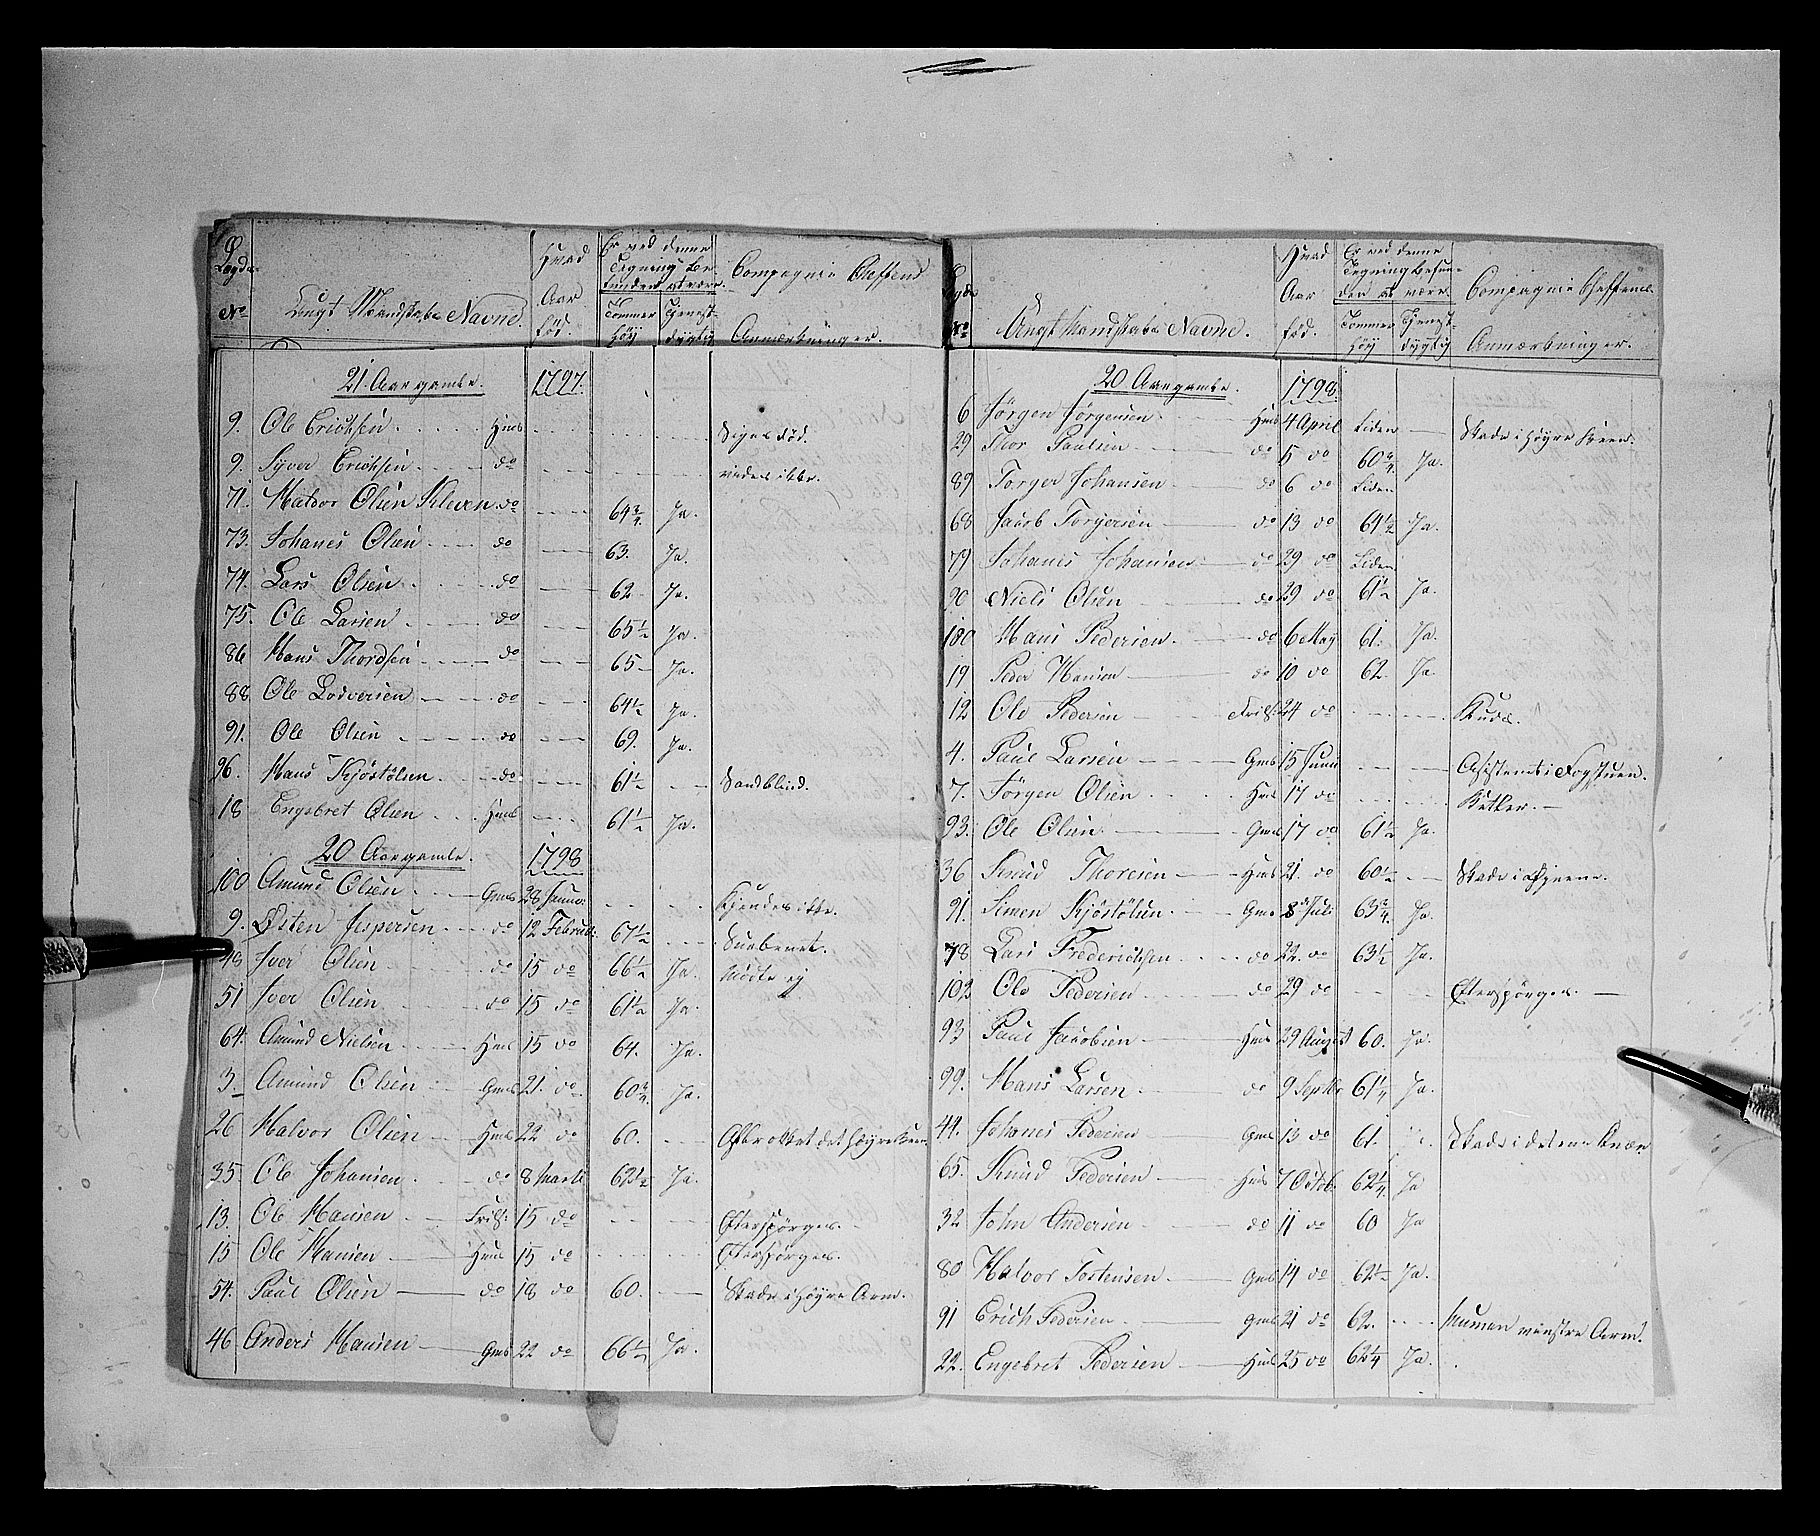 Lægde No | Ungt Mandskabs Navne. | Hvad Aar fød. | Er ved denne Tegning befunden at være Tommer Høy | Tjenestdygtig | Compagnie Cheffens Anmærkninger.
21 Aargamle. 1797.
9. Ole Erichsen Hmd
9. Syver Erichsen do vides ikke.
71. Halvor Olsen Kleven do 64 3/4 Ja.
73. Johanes Olsen do 63. Ja.
74. Lars Olsen do 62 Ja.
75. Ole Larsen do 65 1/2 Ja.
86 Hans Thordsen do 65 Ja.
88. Ole Lodversen do 64 1/2 Ja.
91. Ole Olsen do 69. Ja.
96. Hans Kjøstølsen do 61 1/2 Sandblind.
18 Engebret Olsen Hmd 61 1/2 Ja.
20 Aargamle. 1798
100 Amund Olsen Gmds 28 Januar Kjendes ikke.
9. Østen Jespersen do 12 Februar 67 1/2
48 Iver Olsen do 15 do 66 1/2 Ja. Mødte ej
51 Iver Olsen do 15 do 61 1/2 Ja.
64. Amund Nielsen Hmd 15 do 64. Ja.
3. Amund Olsen Gmds 21. do 60 3/4 Ja.
26 Halvor Olsen Hmd 22 do 60.
35. Ole Johansen do 8 Marts 62 1/2 Ja.
13. Ole Hansen 15 do Efterspørges.
15 Ole Hansen Hmd 15 do Efterspørges.
54. Paul Olsen do 18 do 60. Skade i Høyre Arm.
46 Anders Hansen Gmds 22 do 66 1/2 Ja.
Lægde No | Ungt Mandskabs Navne. | Hvad Aar fød. | Er ved denne Tegning befunden at være Tommer Høy | Tjenestdygtig | Compagnie Cheffens Anmærkninger.
20 Aargamle. 1798.
6 Jørgen Jørgensen Hmd 4 April Liden Skade i Høyre
29 Thor Paulsen do 5 do 60 3/4 Ja.
89 Torger Johansen do 6 do Liden
68 Jacob Torgersen do 13 do 61 1/2 Ja.
79 Johanes Johansen do 29 do Liden
90 Niels Olsen do 29 do 61 1/2 Ja.
100 Hans Pedersen. do 6 May 61. Ja.
19 Peder Hansen do 10 do 62. Ja
12 Ole Pedersen 24 do
4. Paul Larsen Gmds 15 Juni
7. Jørgen Olsen Hmd 17 do
93. Ole Olsen Gmds 17 do 61 1/2 Ja.
36 Knud Thoresen Hmd 21. do 60 1/2 Skade i Øjnene.
91. Simen Kjøstølsen Gmds 8 Juli 63 3/4 Ja.
78 Lars Frederichsen do 22. do 63 1/2 Ja.
102 Ole Pedersen do 29 do Efterspørges.
93 Paul Jacobsen Hmd 29 August 60. Ja.
99. Hans Larsen do 9 Septbr 61 1/4 Ja.
44. Johanes Pedersen Gmds 13 do 61. Skade i det ene Knæ
65. Knud Pedersen Hmd 7 Octob. 62 1/4 Ja
32 John Andersen do 11 do 60 Ja
80 Halvor Tostensen Gmds 14 do 62 1/2 Ja.
91 Erich Pedersen Gmds 21 do 62. venstre Arm.
22. Engebret Pedersen Hmd 25 do 62 1/4 Ja.